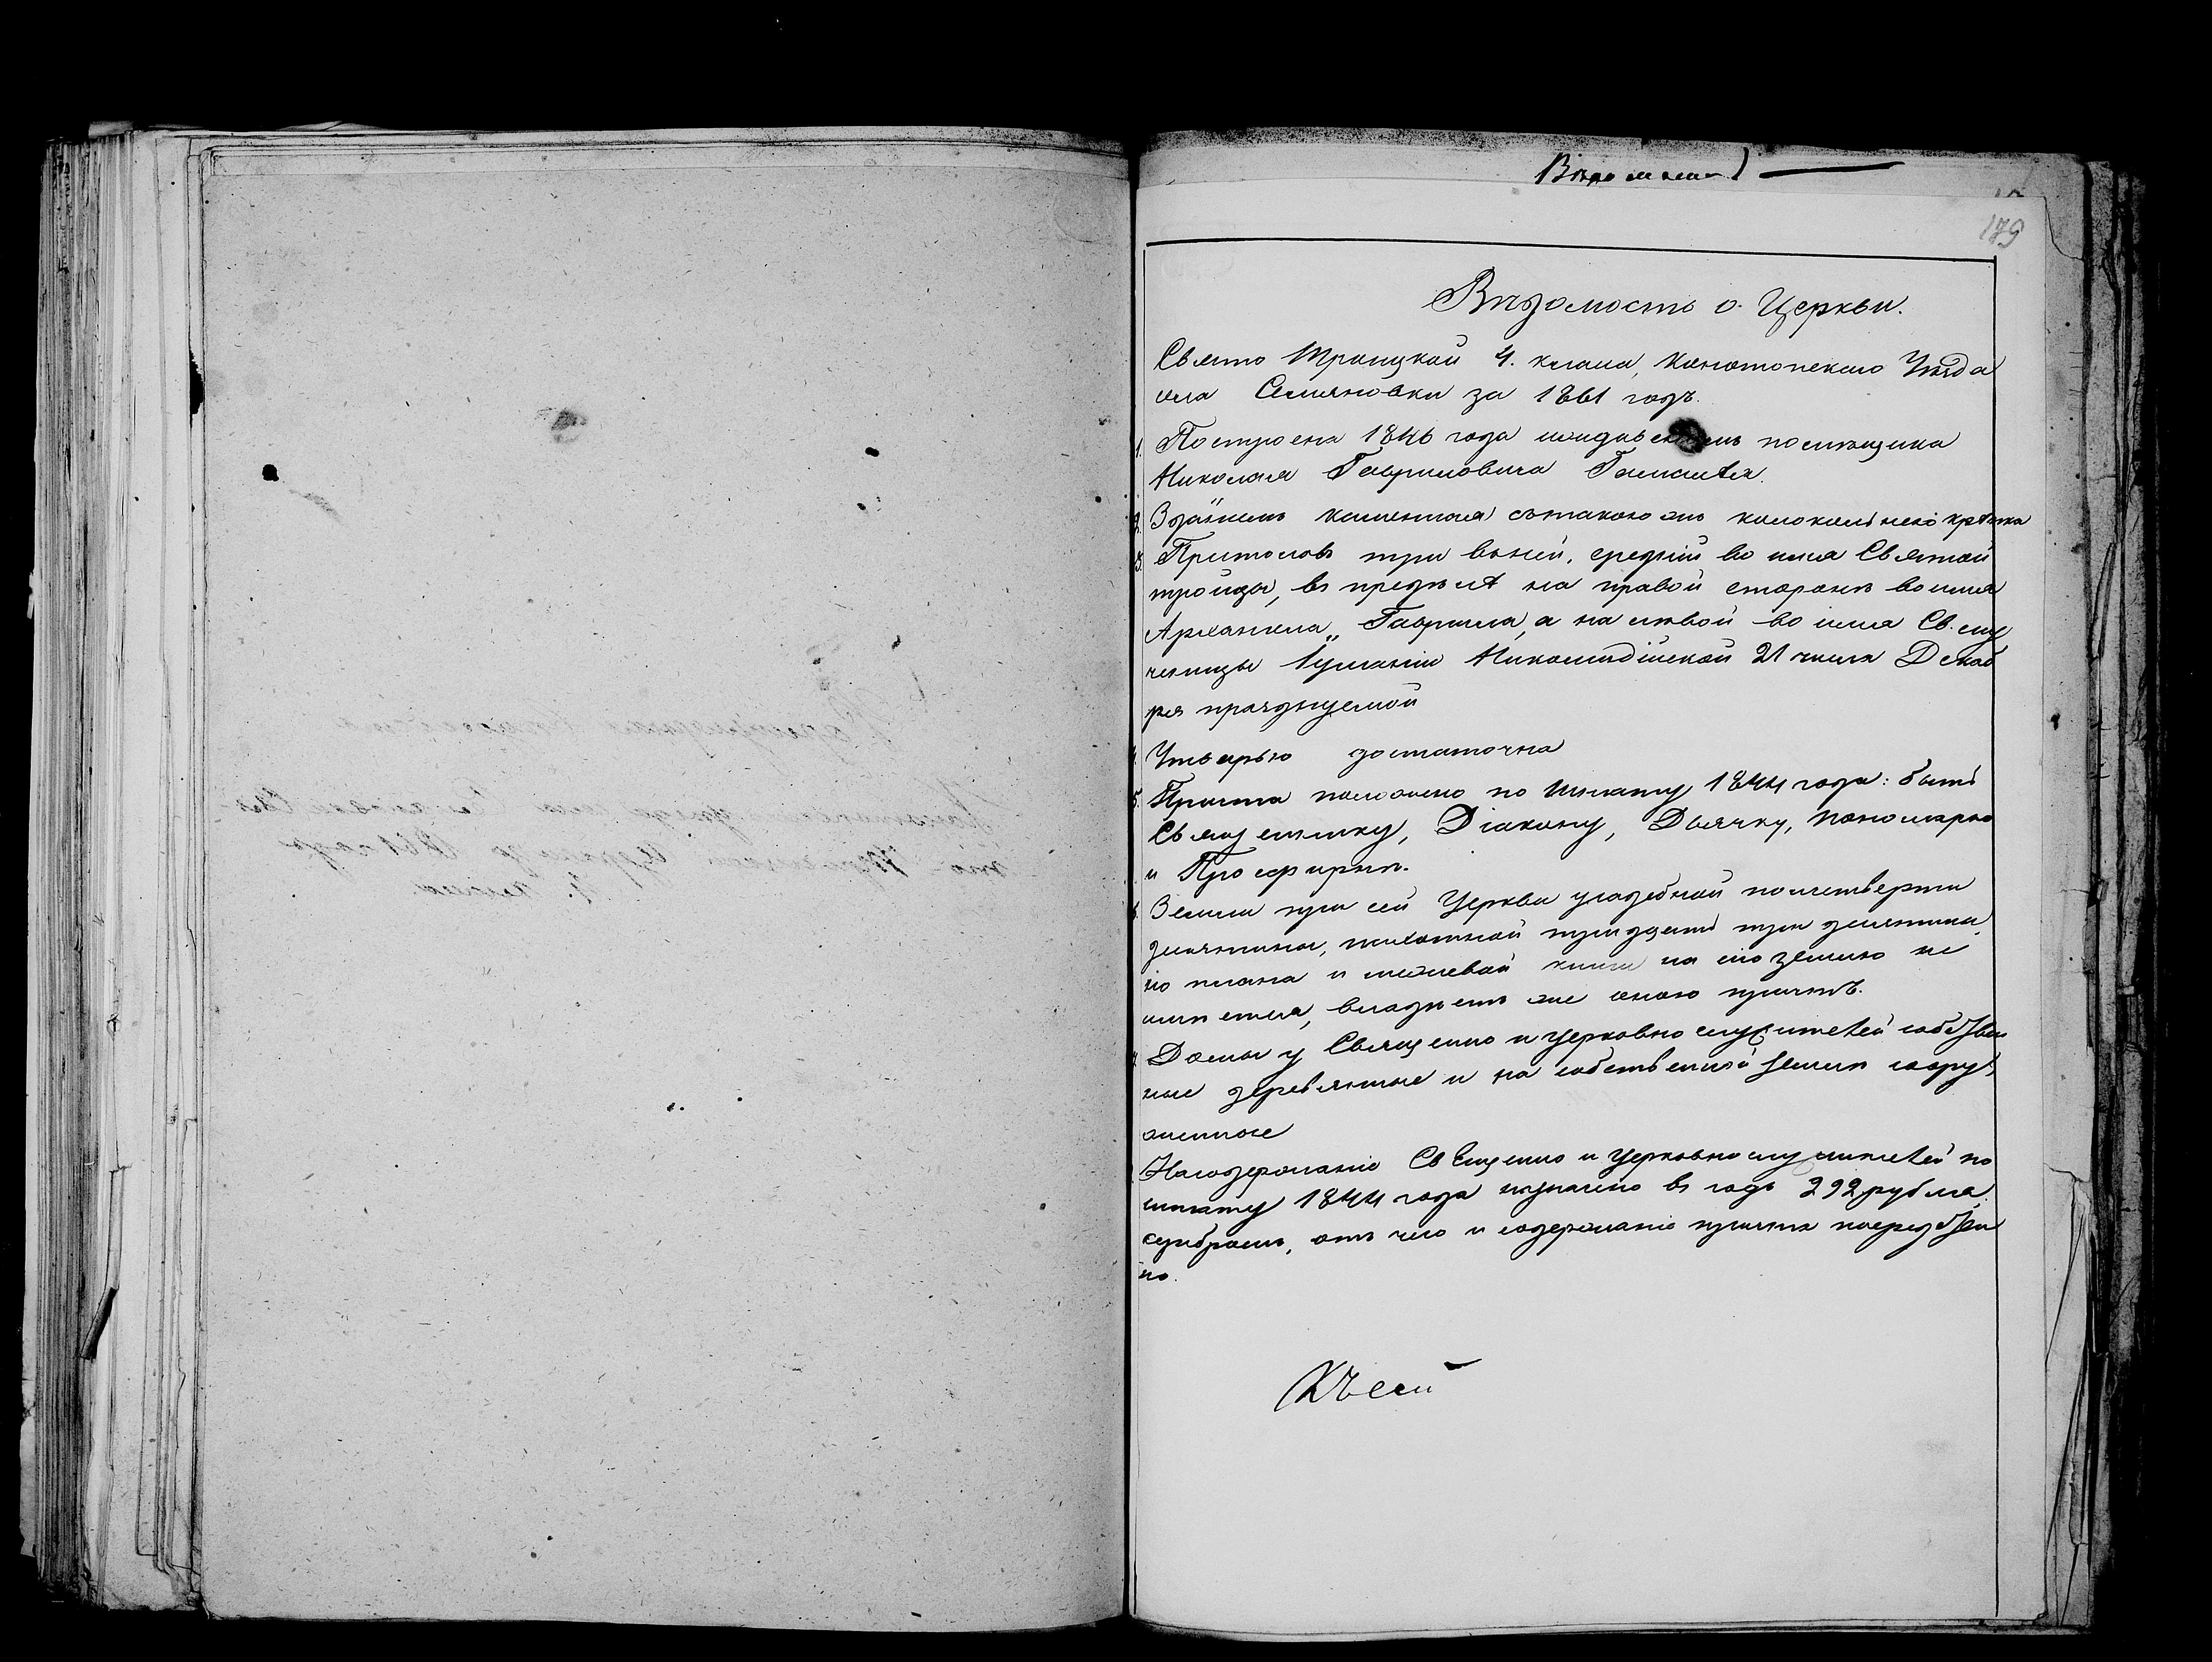 179
Вѣдомость о Церкви.
Свято Троицкой 4. класа, Конотопскаго Уѣзда
села Семяновки за 1861 годъ.
1. Построена 1846 года иждивеніемъ помѣщика
Николая Гавриловича
2. Зданіемъ каменная съ такою же колокольнею крѣпка
3. Пристоловъ три въ ней, средній во имя Святой
троицы, въ предѣлѣ на правой сторонѣ во имя
Архангела Гавриила, а на лѣвой во имя Св. му
ченицы Іуліаніи Никомидійской 21 числа Декаб
ря празднуемой
4. Утварью достаточна
5. Причта положено по штату 1844 года: быть
Священнику, Діакону, Дьячку, Пономарю
и Просфирнѣ.
6. Земли при сей Церкви усадебной полчетверти
десятины, пахотной тридцать три десятины,
но плана и межевой книги на сію землю не
имѣется, владѣетъ же оною причтъ.
7. Домы у Священно и церковно служителей собствен
ные деревянные и на собственной земли соору
женные
На содержаніе Священно и Церковно служителей по
штату 1844 года получено въ годъ 292 рубля
сребромъ, отъ чего и содержаніе причта посредствен
но.
Къ сей